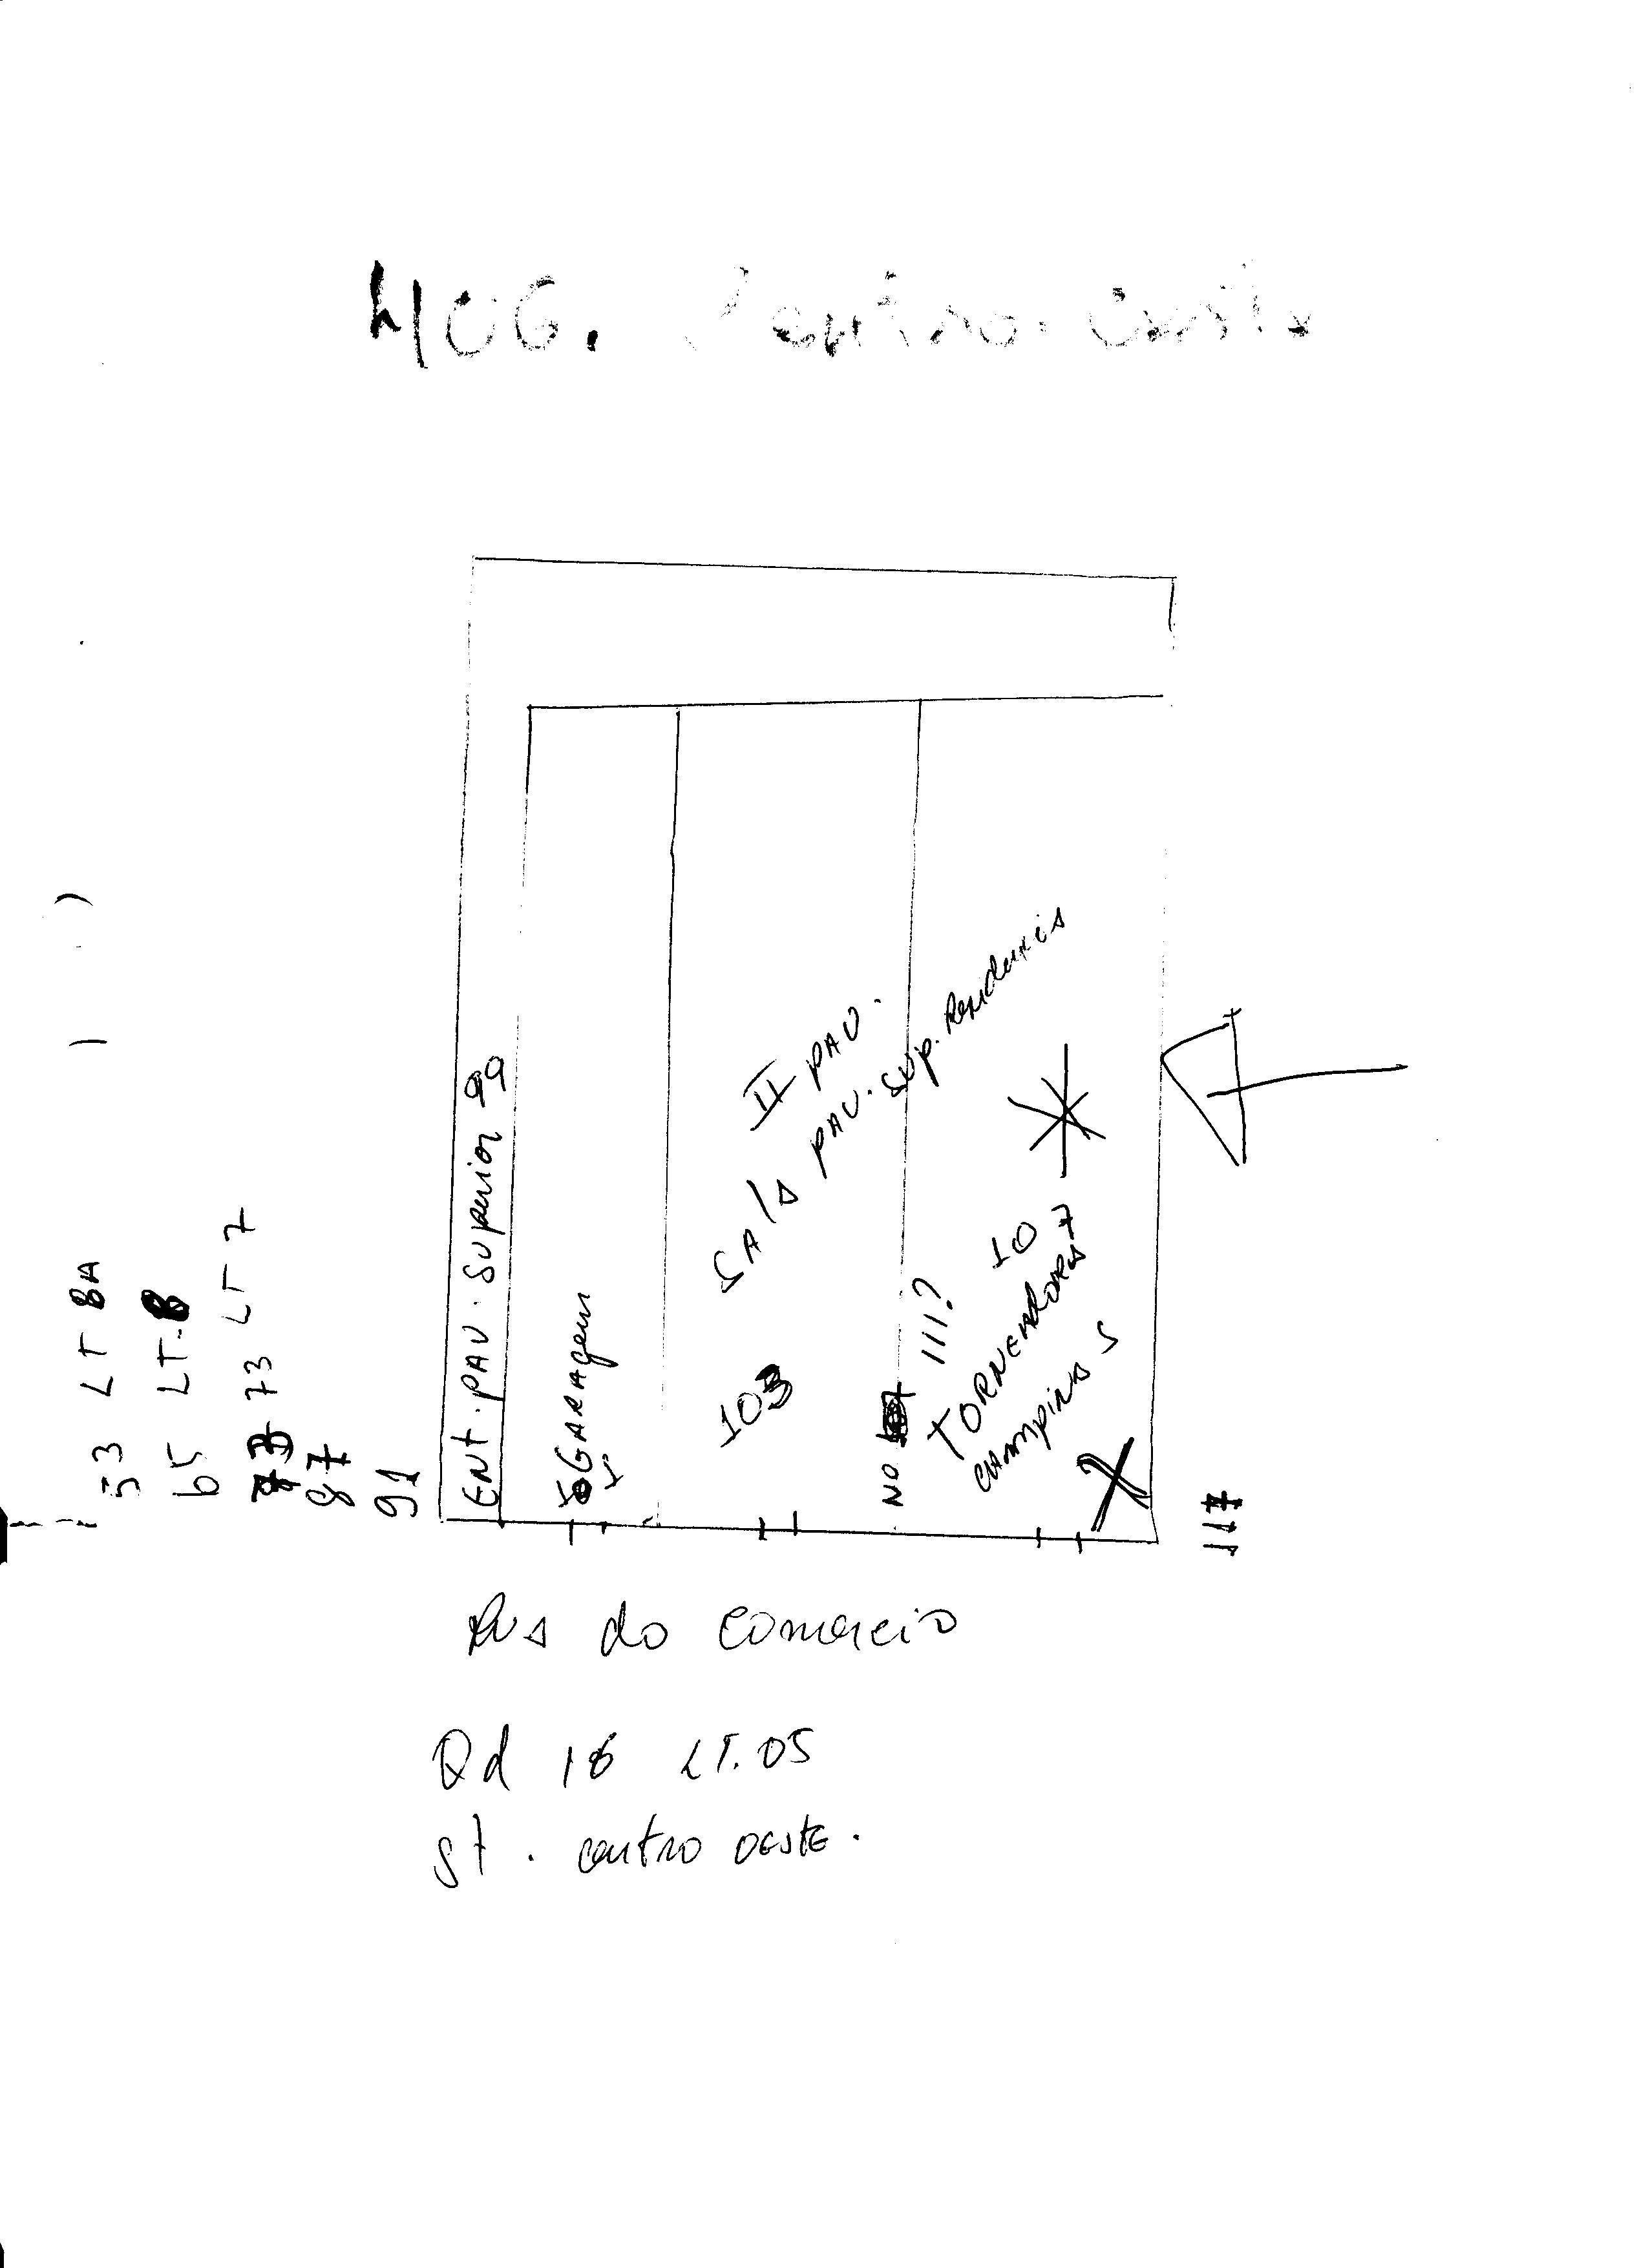 53 LT 8A
65 LT. 8
73 LT 7
87
91
ENt. PAV. Superior 99
GARAgem
103
II PAV.
SAlA PAV. SUP.
NO
111?
107
CAMPINAS
117
RUA do Comercio
Qd 16 LT. 05
St. centro oeste.